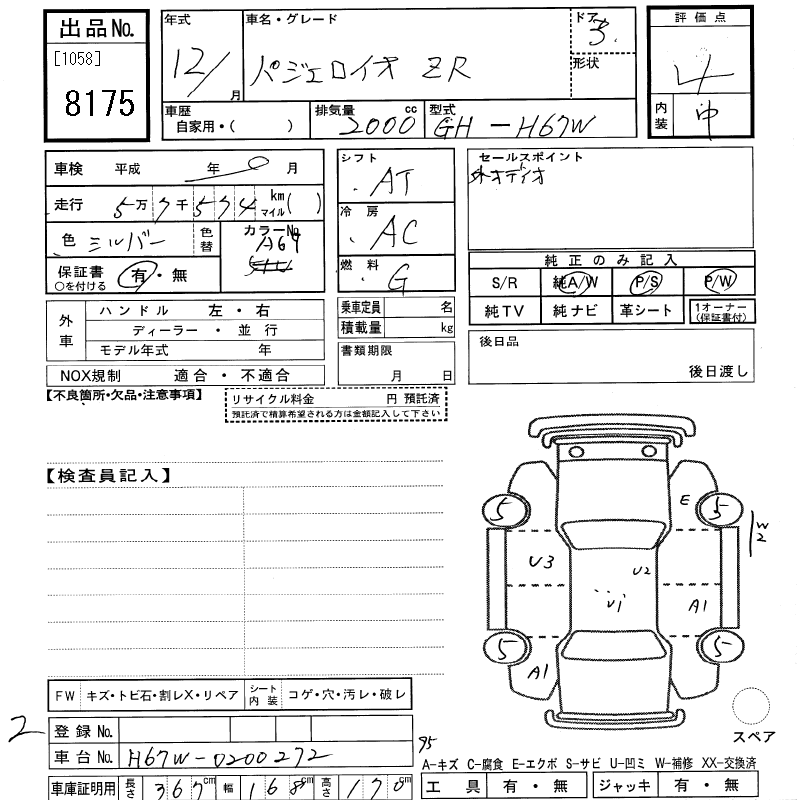 出品No.
[1058]
8175
年式
12/
月
車名・グレード
パジェロイオ ZR
ドア
5.
形状
評価点
4
内装
中
車歴
自家用・( )
排気量 cc
2000
型式
GH-H67W
車検 平成 年 0 月
走行 5万7千574 km マイル( )
色 シルバー
色替
カラーNo.
A69
保証書 有・無
○を付ける
シフト
AT
冷房
AC
燃料
G
セールスポイント
外オディオ
純正のみ記入
S/R 純A/W P/S P/W
純TV 純ナビ 革シート 1オーナー(保証書付)
外車
ハンドル 左・右
ディーラー・並行
モデル年式 年
NOX規制 適合・不適合
乗車定員 名
積載量 kg
書類期限
月 日
後日品
後日渡し
【不良箇所・欠品・注意事項】
リサイクル料金 円 預託済
預託済で精算希望される方は金額記入して下さい
【検査員記入】
E
5 5
W2
U3
U2
U1
A1
5 5
A1
スペア
FW キズ・トビ石・割レX・リペア
シート内装 コゲ・穴・汚レ・破レ
2
登録No.
車台No. H67W-0200272
95
A-キズ C-腐食 E-エクボ S-サビ U-凹ミ W-補修 XX-交換済
車庫証明用 長さ 367cm 幅 168cm 高さ 170cm
工具 有・無 ジャッキ 有・無